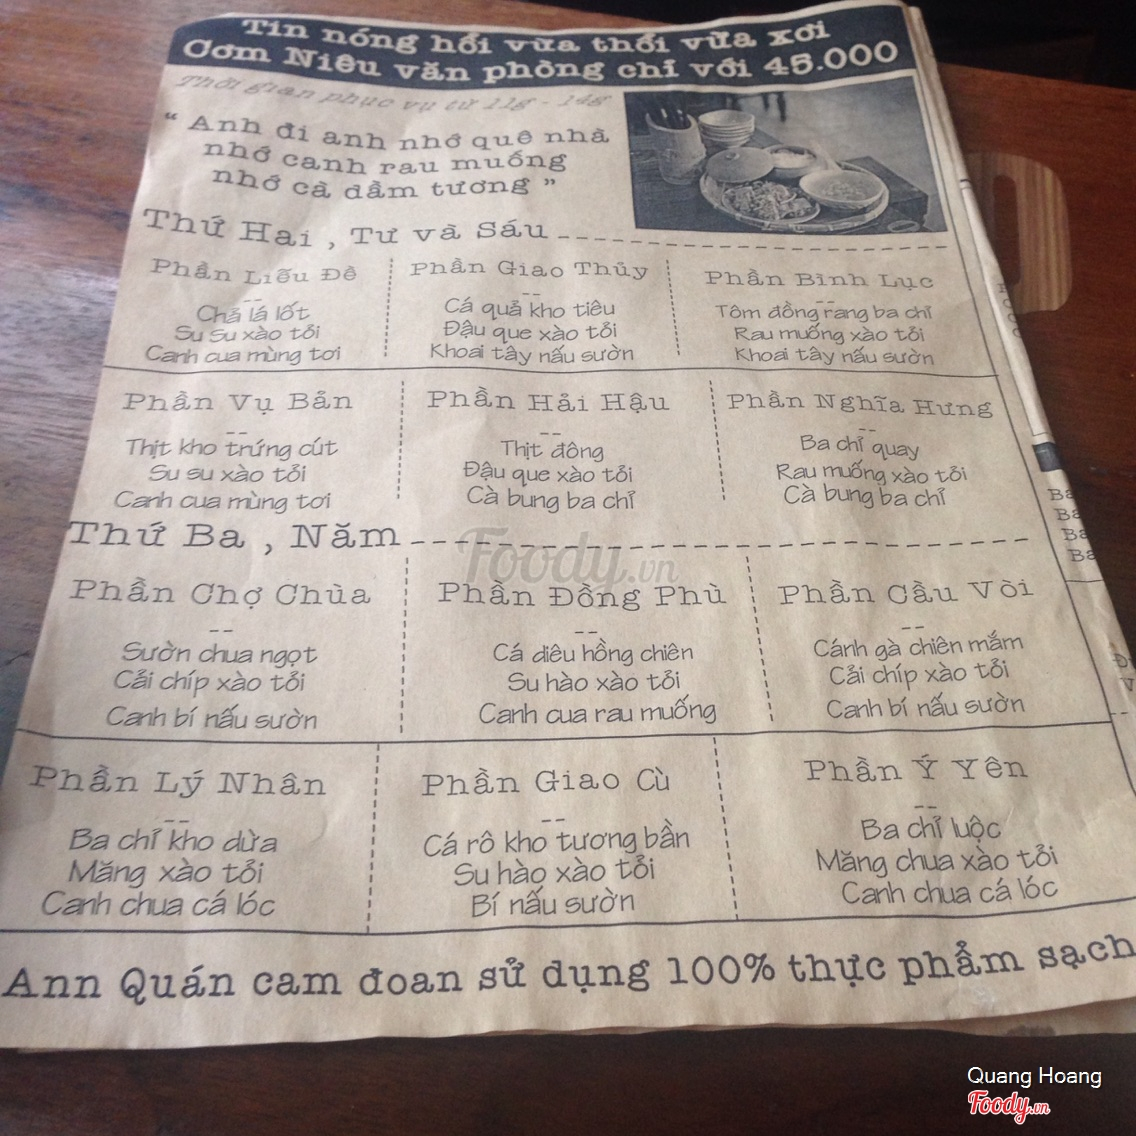 Tin nóng hổi vừa thổi vừa xơi
Cơm Niêu văn phòng chỉ với 45.000
Thời gian phục vụ từ 11g - 14g
“ Anh đi anh nhớ quê nhà
nhớ canh rau muống
nhớ cà dầm tương ”
Thứ Hai , Tư và Sáu
Phần Liễu Đề
Chả lá lốt
Su Su xào tỏi
Canh cua mùng tơi
Phần Giao Thủy
Cá quả kho tiêu
Đậu que xào tỏi
Khoai tây nấu sườn
Phần Bình Lục
Tôm đồng rang ba chỉ
Rau muống xào tỏi
Khoai tây nấu sườn
Phần Vụ Bản
Thịt kho trứng cút
Su su xào tỏi
Canh cua mùng tơi
Phần Hải Hậu
Thịt đông
Đậu que xào tỏi
Cà bung ba chỉ
Phần Nghĩa Hưng
Ba chỉ quay
Rau muống xào tỏi
Cà bung ba chỉ
Thứ Ba , Năm
Phần Chợ Chùa
Sườn chua ngọt
Cải chíp xào tỏi
Canh bí nấu sườn
Phần Đồng Phù
Cá diêu hồng chiên
Su hào xào tỏi
Canh cua rau muống
Phần Cầu Vòi
Cánh gà chiên mắm
Cải chíp xào tỏi
Canh bí nấu sườn
Phần Lý Nhân
Ba chỉ kho dừa
Măng xào tỏi
Canh chua cá lóc
Phần Giao Cù
Cá rô kho tương bần
Su hào xào tỏi
Bí nấu sườn
Phần Ý Yên
Ba chỉ luộc
Măng chua xào tỏi
Canh chua cá lóc
Ann Quán cam đoan sử dụng 100% thực phẩm sạch
Foody.vn
Quang Hoang
Foody.vn